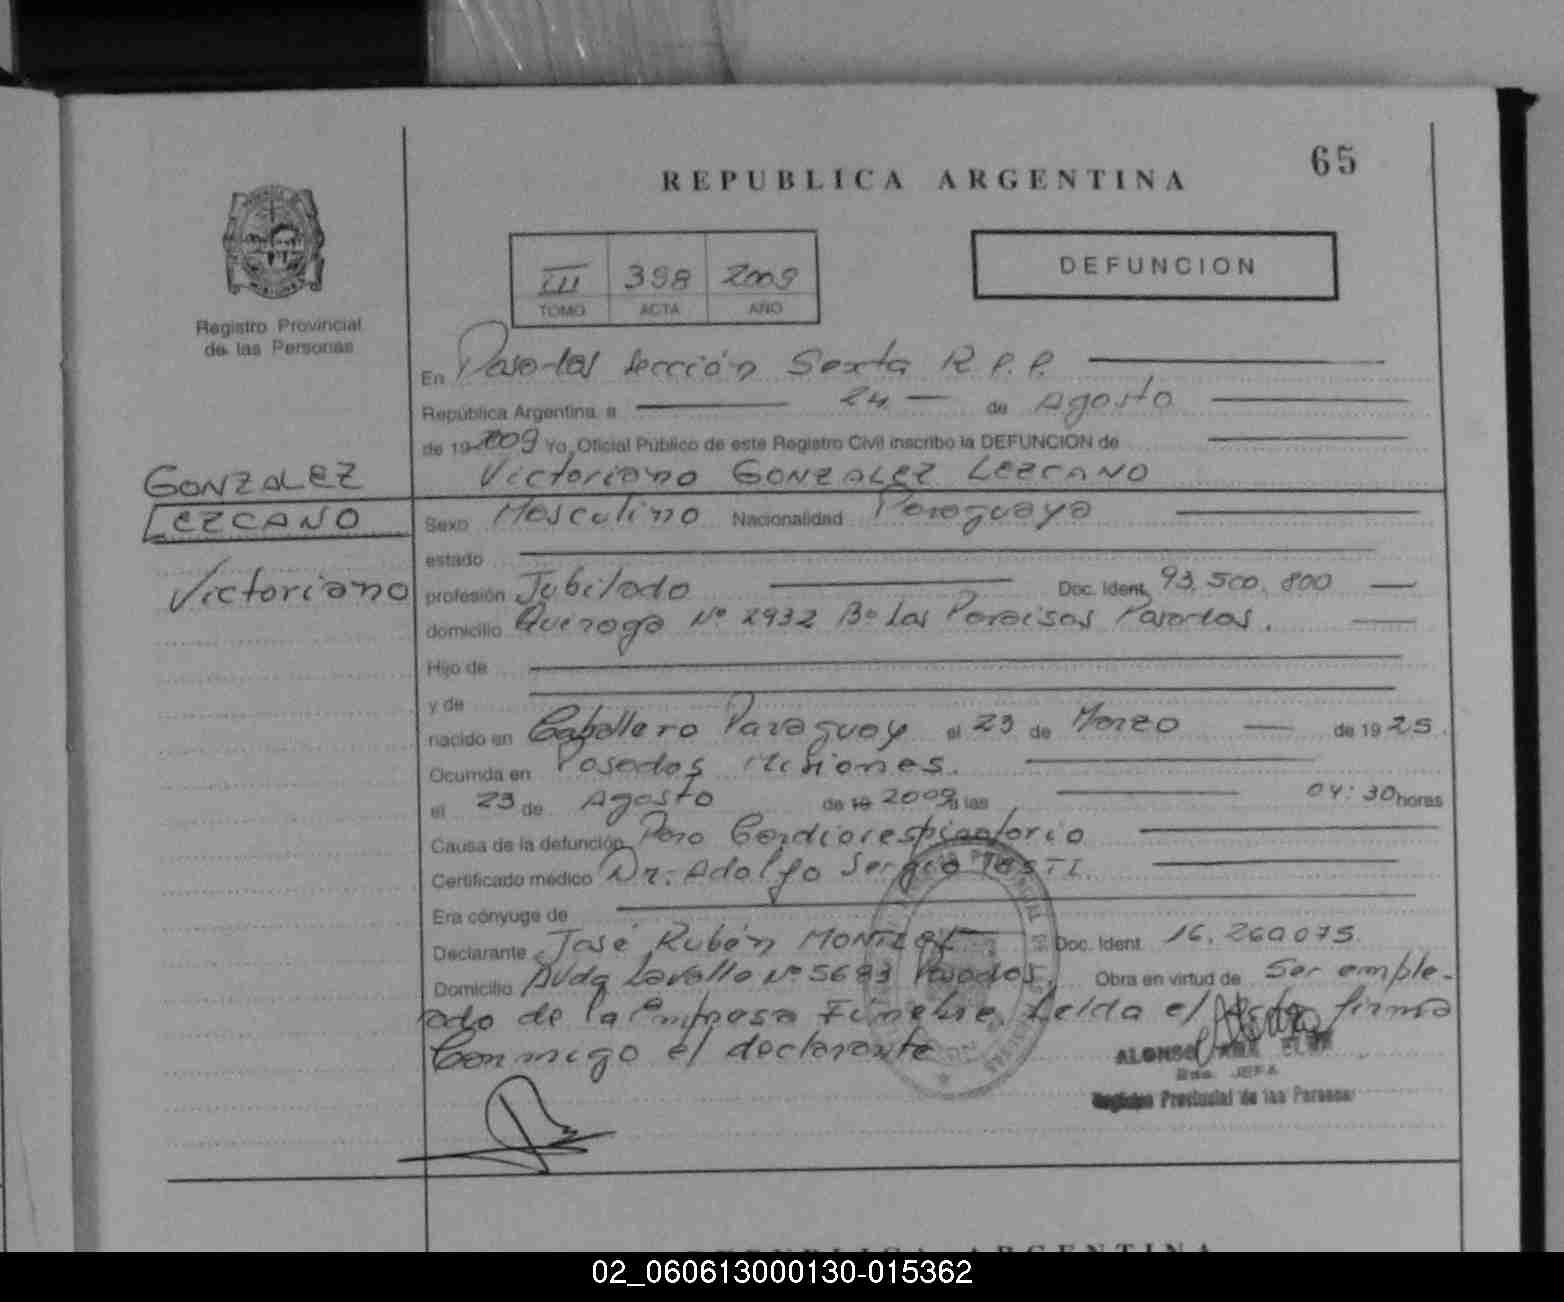 65
REPUBLICA ARGENTINA
III 398 2009
TOMO ACTA AÑO
DEFUNCION
Registro Provincial
de las Personas
En Posadas Sección Sexta R.P.P.
República Argentina, a 24 de Agosto
de 19 2009 Yo, Oficial Público de este Registro Civil inscribo la DEFUNCION de
Victoriano GONZALEZ LEZCANO
GONZALEZ
LEZCANO
Victoriano
Sexo Masculino Nacionalidad Paraguaya
estado
profesión Jubilado Doc. Ident. 93.500.800
domicilio Quiroga Nº 2932 Bº Los Paraisos Posadas.
Hijo de
y de
nacido en Caballero Paraguay el 23 de Marzo de 1925.
Ocurrida en Posadas Misiones.
el 23 de Agosto de 19 2009 a las 04:30 horas
Causa de la defunción Paro Cardiorespiratorio
Certificado médico Dr. Adolfo Sergio TOSTI
Era cónyuge de
Declarante José Rubén Doc. Ident. 16.260.075
Domicilio Avda Lavalle Nº 5683 Posadas, Obra en virtud de Ser emple-
ado de la Empresa Fúnebre. Leida el Acta firma
Conmigo el declarante
ALONSO ANA
JEFA
Registro Provincial de las Personas
REPUBLICA ARGENTINA
02_060613000130-015362